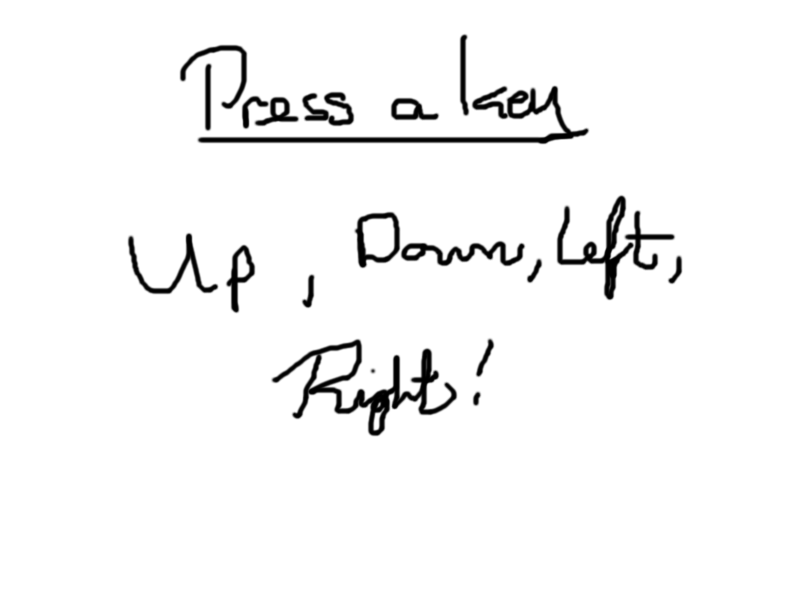 Press a key
Up, Down, Left,
Right!